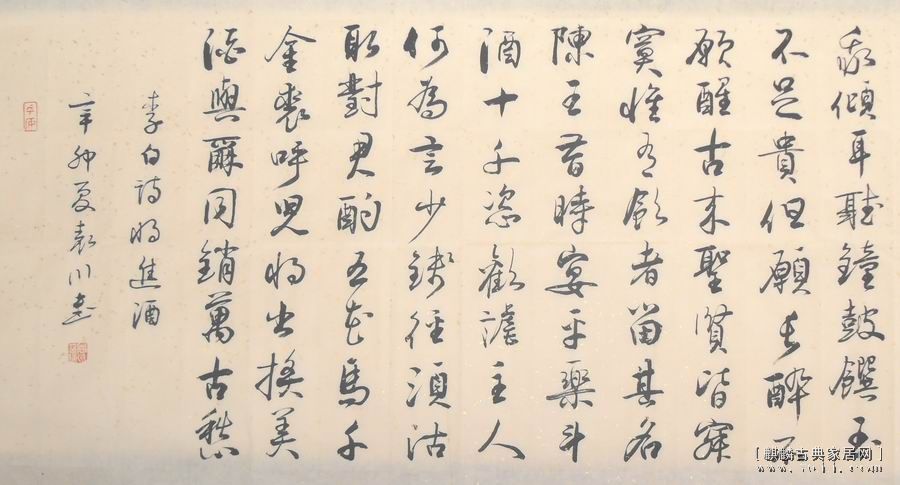 我傾耳聽鐘鼓饌玉
不足貴但願長醉不
願醒古來聖賢皆寂
寞惟有飲者留其名
陳王昔時宴平樂斗
酒十千恣歡謔主人
何為言少錢徑須沽
取對君酌五花馬千
金裘呼兒將出換美
酒與爾同銷萬古愁
李白詩將進酒
辛卯夏袁川書
[麒麟古典家居网]